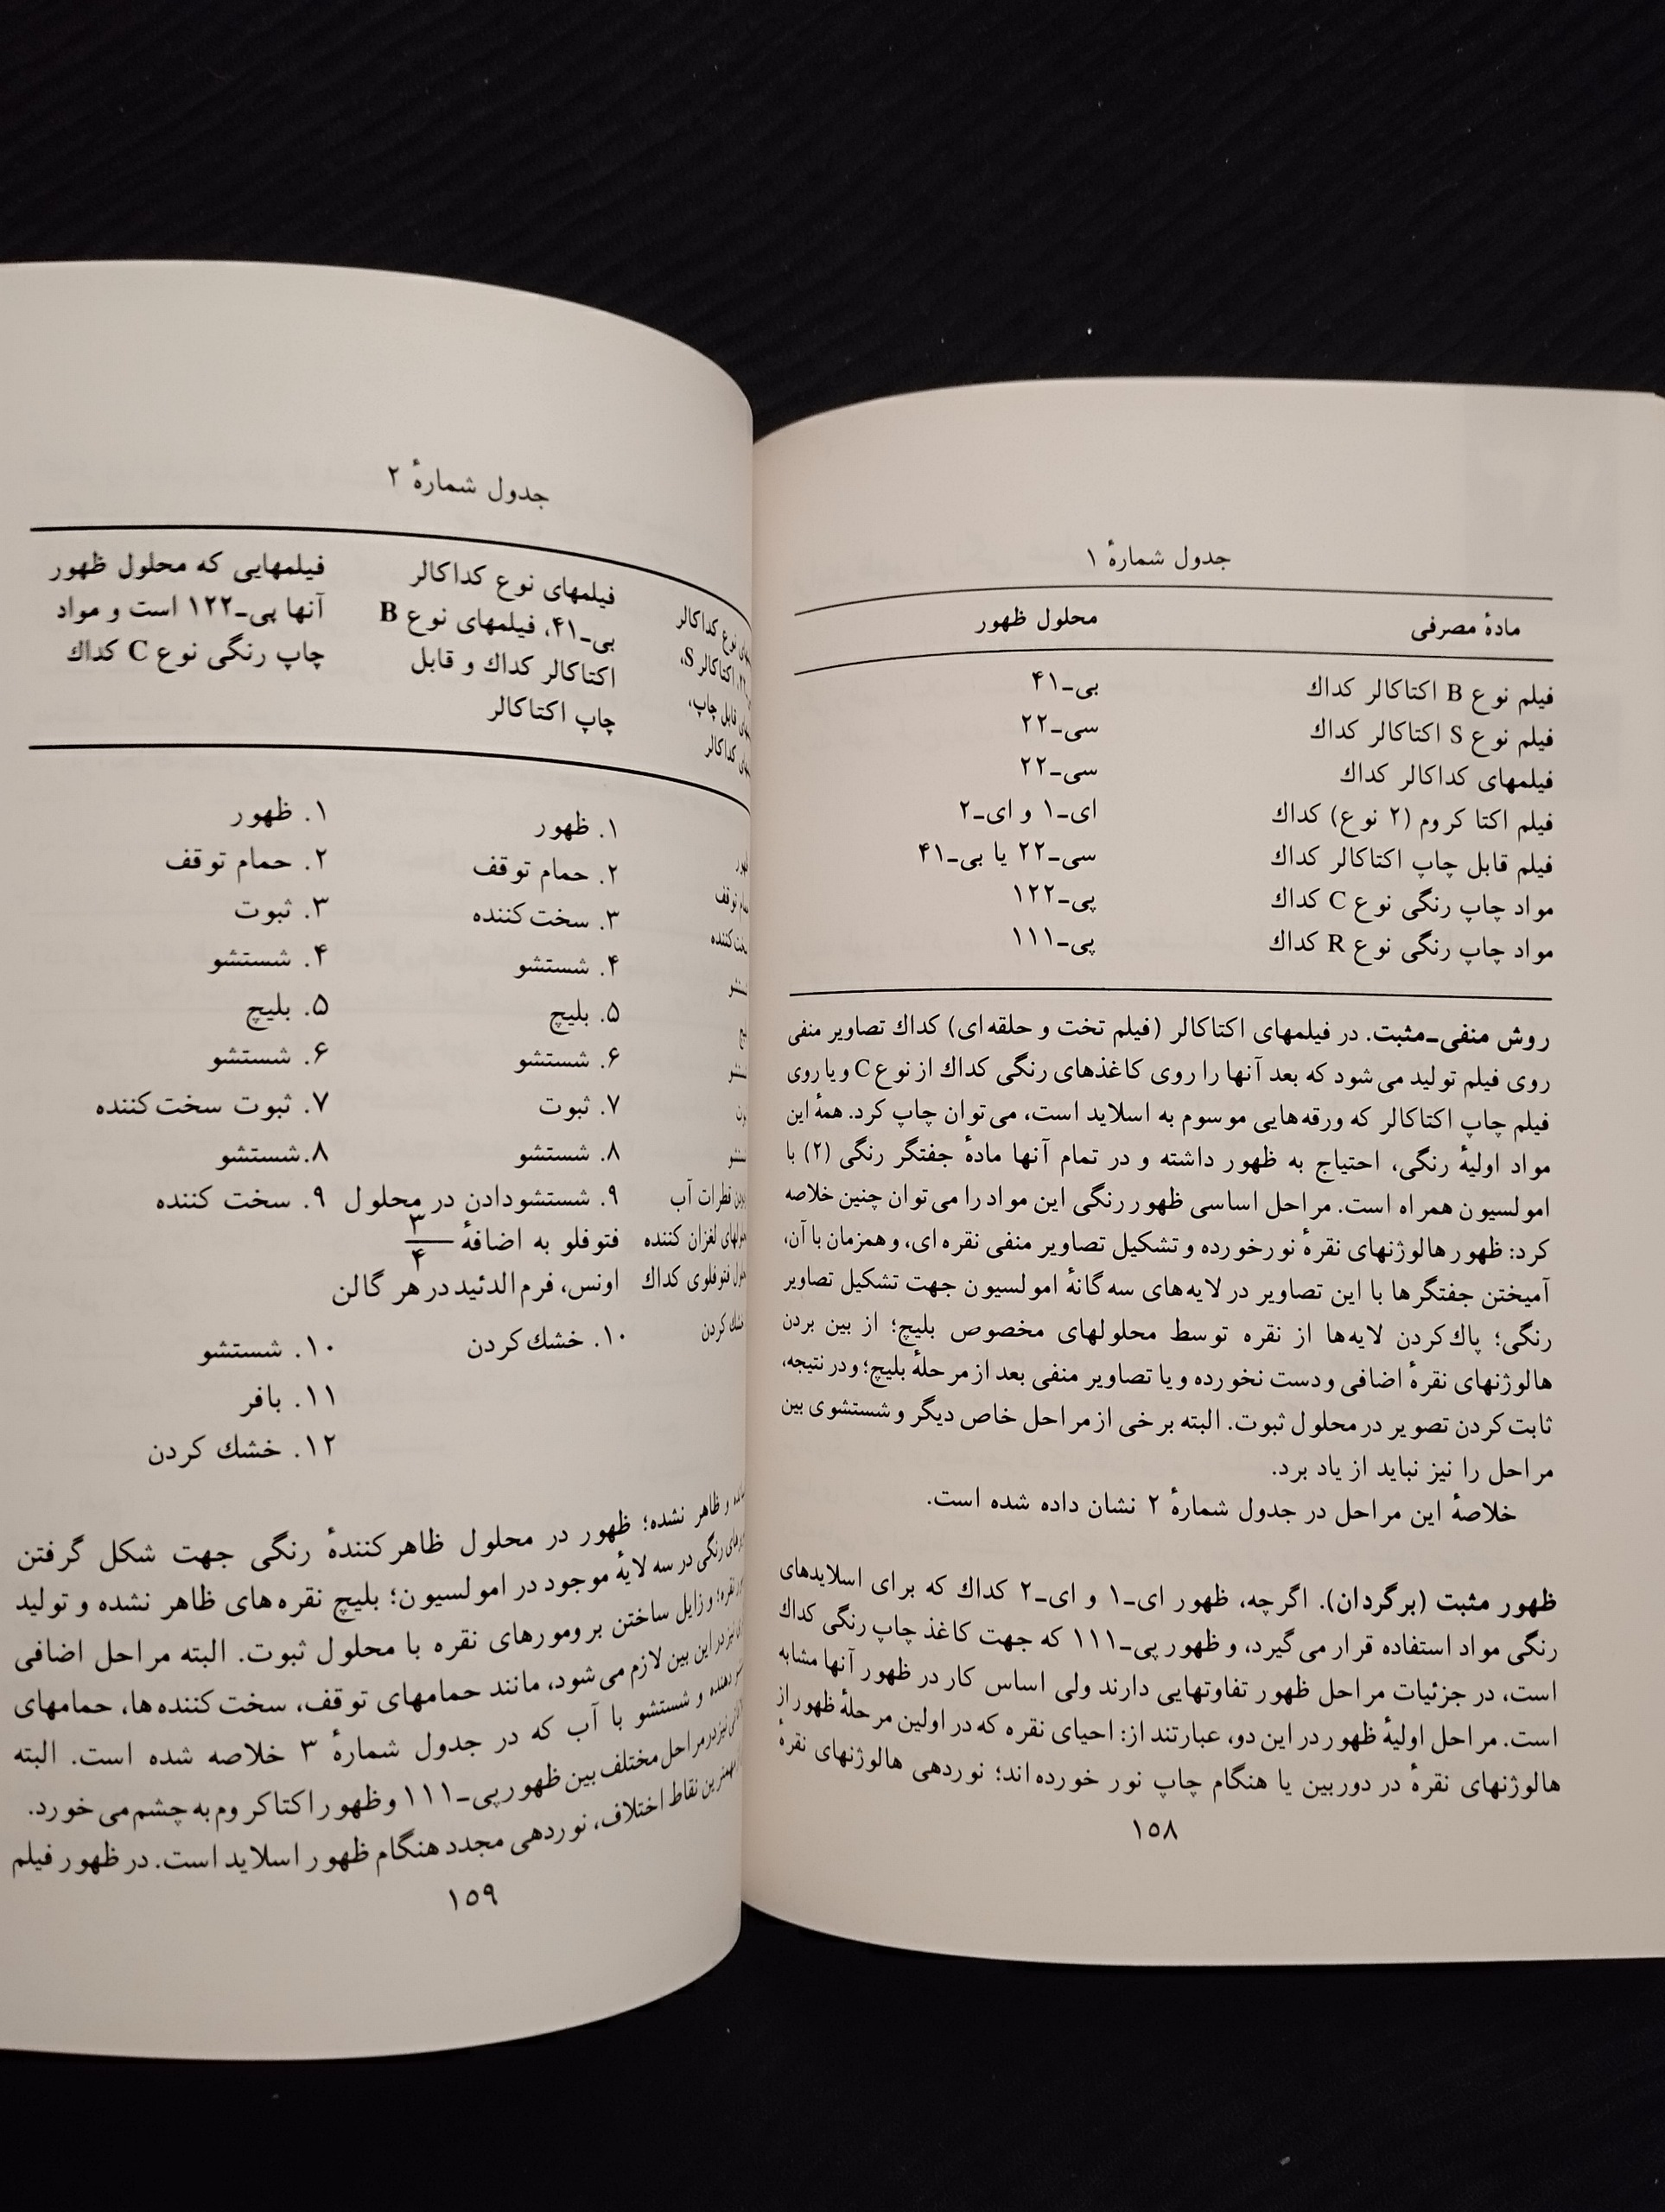 جدول شمارهٔ ۱
مادهٔ مصرفی محلول ظهور
فیلم نوع B اکتاکالر کداك بی-۴۱
فیلم نوع S اکتاکالر کداك سی-۲۲
فیلمهای کداکالر کداك سی-۲۲
فیلم اکتا کروم (۲ نوع) کداك ای-۱ و ای-۲
فیلم قابل چاپ اکتاکالر کداك سی-۲۲ یا بی-۴۱
مواد چاپ رنگی نوع C کداك پی-۱۲۲
مواد چاپ رنگی نوع R کداك پی-۱۱۱
روش منفی-مثبت. در فیلمهای اکتاکالر (فیلم تخت و حلقه‌ای) کداك تصاویر منفی
روی فیلم تولید می‌شود که بعد آنها را روی کاغذهای رنگی کداك از نوع C ویا روی
فیلم چاپ اکتاکالر که ورقه‌هایی موسوم به اسلاید است، می‌توان چاپ کرد. همهٔ این
مواد اولیهٔ رنگی، احتیاج به ظهور داشته و در تمام آنها مادهٔ جفتگر رنگی (۲) با
امولسیون همراه است. مراحل اساسی ظهور رنگی این مواد را می‌توان چنین خلاصه
کرد: ظهور هالوژنهای نقرهٔ نورخورده و تشکیل تصاویر منفی نقره ای، و همزمان با آن،
آمیختن جفتگرها با این تصاویر در لایه‌های سه‌گانهٔ امولسیون جهت تشکیل تصاویر
رنگی؛ پاك‌کردن لایه‌ها از نقره توسط محلولهای مخصوص بلیچ؛ از بین بردن
هالوژنهای نقرهٔ اضافی و دست نخورده و یا تصاویر منفی بعد از مرحلهٔ بلیچ؛ و در نتیجه،
ثابت کردن تصویر در محلول ثبوت. البته برخی از مراحل خاص دیگر و شستشوی بین
مراحل را نیز نباید از یاد برد.
خلاصهٔ این مراحل در جدول شمارهٔ ۲ نشان داده شده است.
ظهور مثبت (برگردان). اگرچه، ظهور ای-۱ و ای-۲ کداك که برای اسلایدهای
رنگی مواد استفاده قرار می‌گیرد، و ظهور پی-۱۱۱ که جهت کاغذ چاپ رنگی کداك
است، در جزئیات مراحل ظهور تفاوتهایی دارند ولی اساس کار در ظهور آنها مشابه
است. مراحل اولیهٔ ظهور در این دو، عبارتند از: احیای نقره که در اولین مرحلهٔ ظهور از
هالوژنهای نقرهٔ در دوربین یا هنگام چاپ نور خورده‌اند؛ نوردهی هالوژنهای نقرهٔ
۱۵۸
جدول شمارهٔ ۲
نوع کداکالر فیلمهای نوع کداکالر فیلمهایی که محلول ظهور
اکتاکالر S، بی-۴۱، فیلمهای نوع B آنها پی-۱۲۲ است و مواد
قابل چاپ، اکتاکالر کداك و قابل چاپ رنگی نوع C کداك
کداکالر چاپ اکتاکالر
۱. ظهور ۱. ظهور
توقف ۲. حمام توقف ۲. حمام توقف
۳. سخت‌کننده ۳. ثبوت
۴. شستشو ۴. شستشو
۵. بلیچ ۵. بلیچ
۶. شستشو ۶. شستشو
۷. ثبوت ۷. ثبوت سخت‌کننده
۸. شستشو ۸. شستشو
قطرات آب ۹. شستشودادن در محلول ۹. سخت کننده
لغزان کننده فتوفلو به اضافهٔ ۳/۴
فتوفلوی کداك اونس، فرم‌الدئید در هر گالن
کردن ۱۰. خشك‌کردن ۱۰. شستشو
۱۱. بافر
۱۲. خشك کردن
و ظاهر نشده؛ ظهور در محلول ظاهرکنندهٔ رنگی جهت شکل گرفتن
رنگی در سه لایهٔ موجود در امولسیون؛ بلیچ نقره‌های ظاهر نشده و تولید
نقره؛ و زایل ساختن برومورهای نقره با محلول ثبوت. البته مراحل اضافی
نیز در این بین لازم می‌شود، مانند حمامهای توقف، سخت‌کننده‌ها، حمامهای
دهنده و شستشو با آب که در جدول شمارهٔ ۳ خلاصه شده است. البته
نیز در مراحل مختلف بین ظهور پی-۱۱۱ و ظهور اکتاکروم به چشم می‌خورد.
مهمترین نقاط اختلاف، نوردهی مجدد هنگام ظهور اسلاید است. در ظهور فیلم
۱۵۹